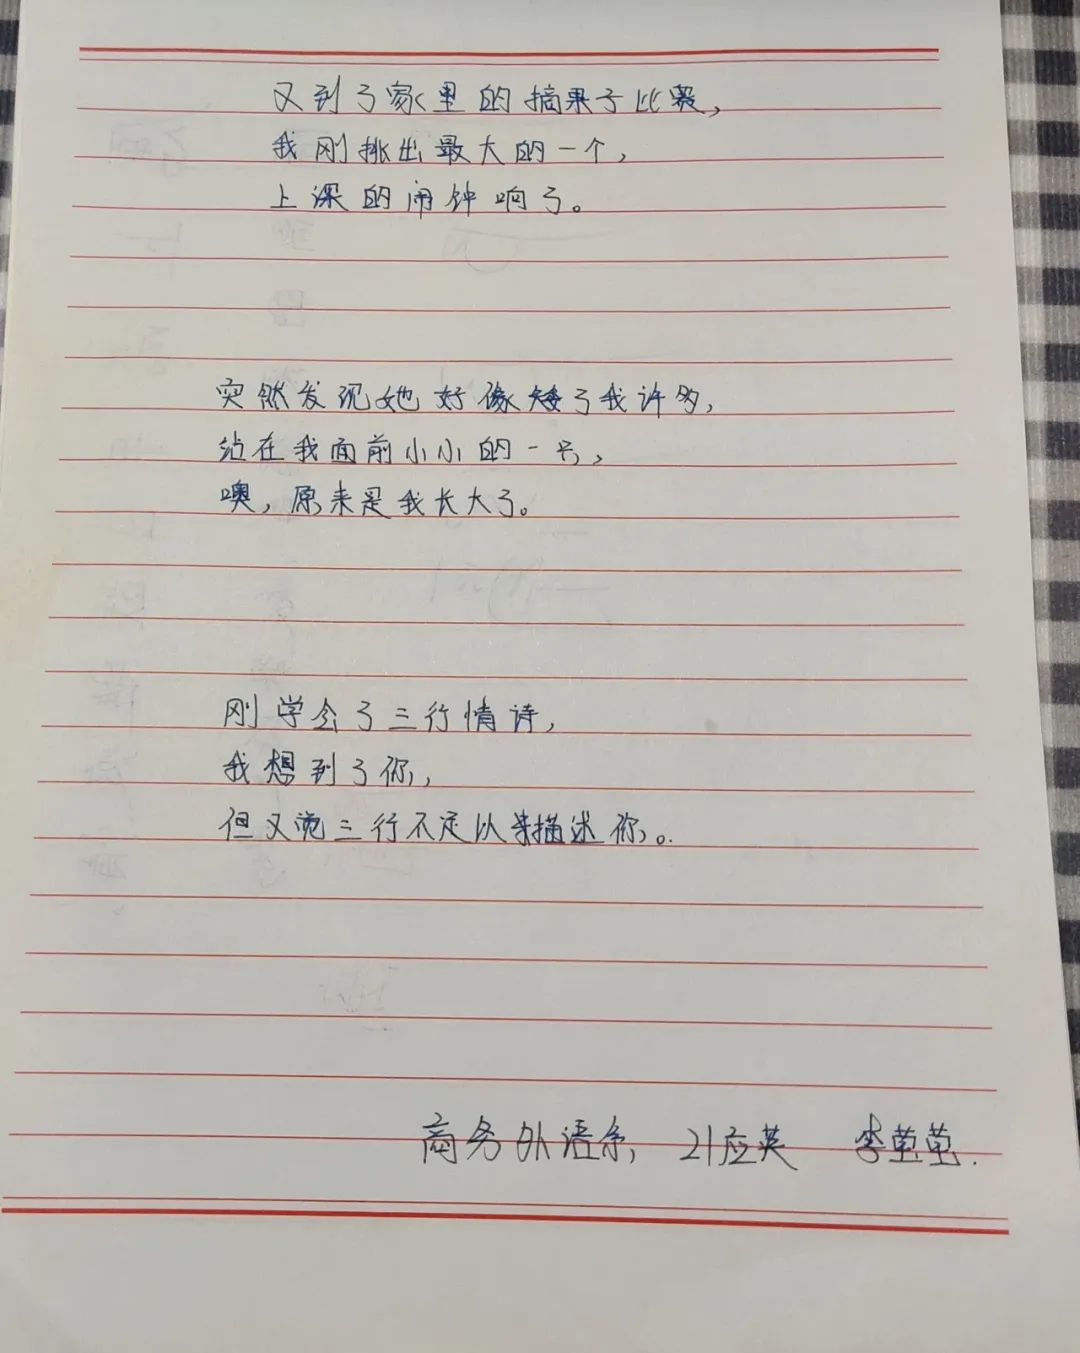 又到了家里的摘果子比赛，
我刚挑出最大的一个，
上课的闹钟响了。
突然发现她好像矮了我许多，
站在我面前小小的一只，
噢，原来是我长大了。
刚学会了三行情诗，
我想到了你，
但又觉三行不足以来描述你。
商务外语系 21应英 李莹莹